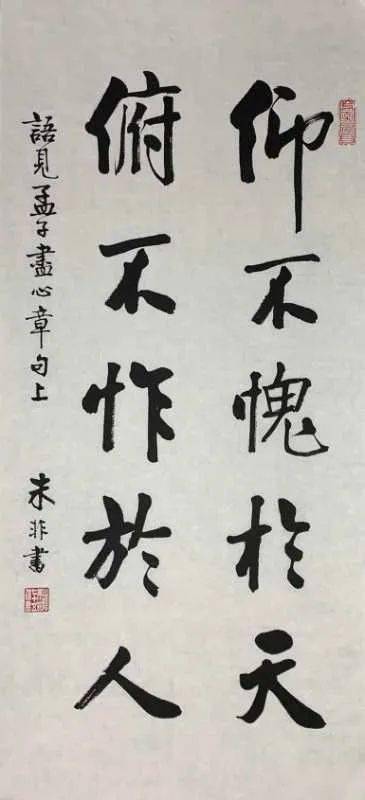 仰不愧於天
俯不怍於人
語見孟子盡心章句上
未非書